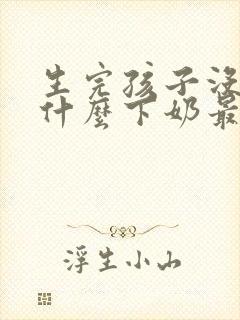 生完孩子没
什麼下奶最
浮生小山